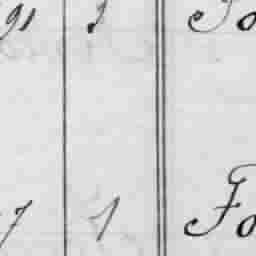 91 3 Fo
7 1 Fo